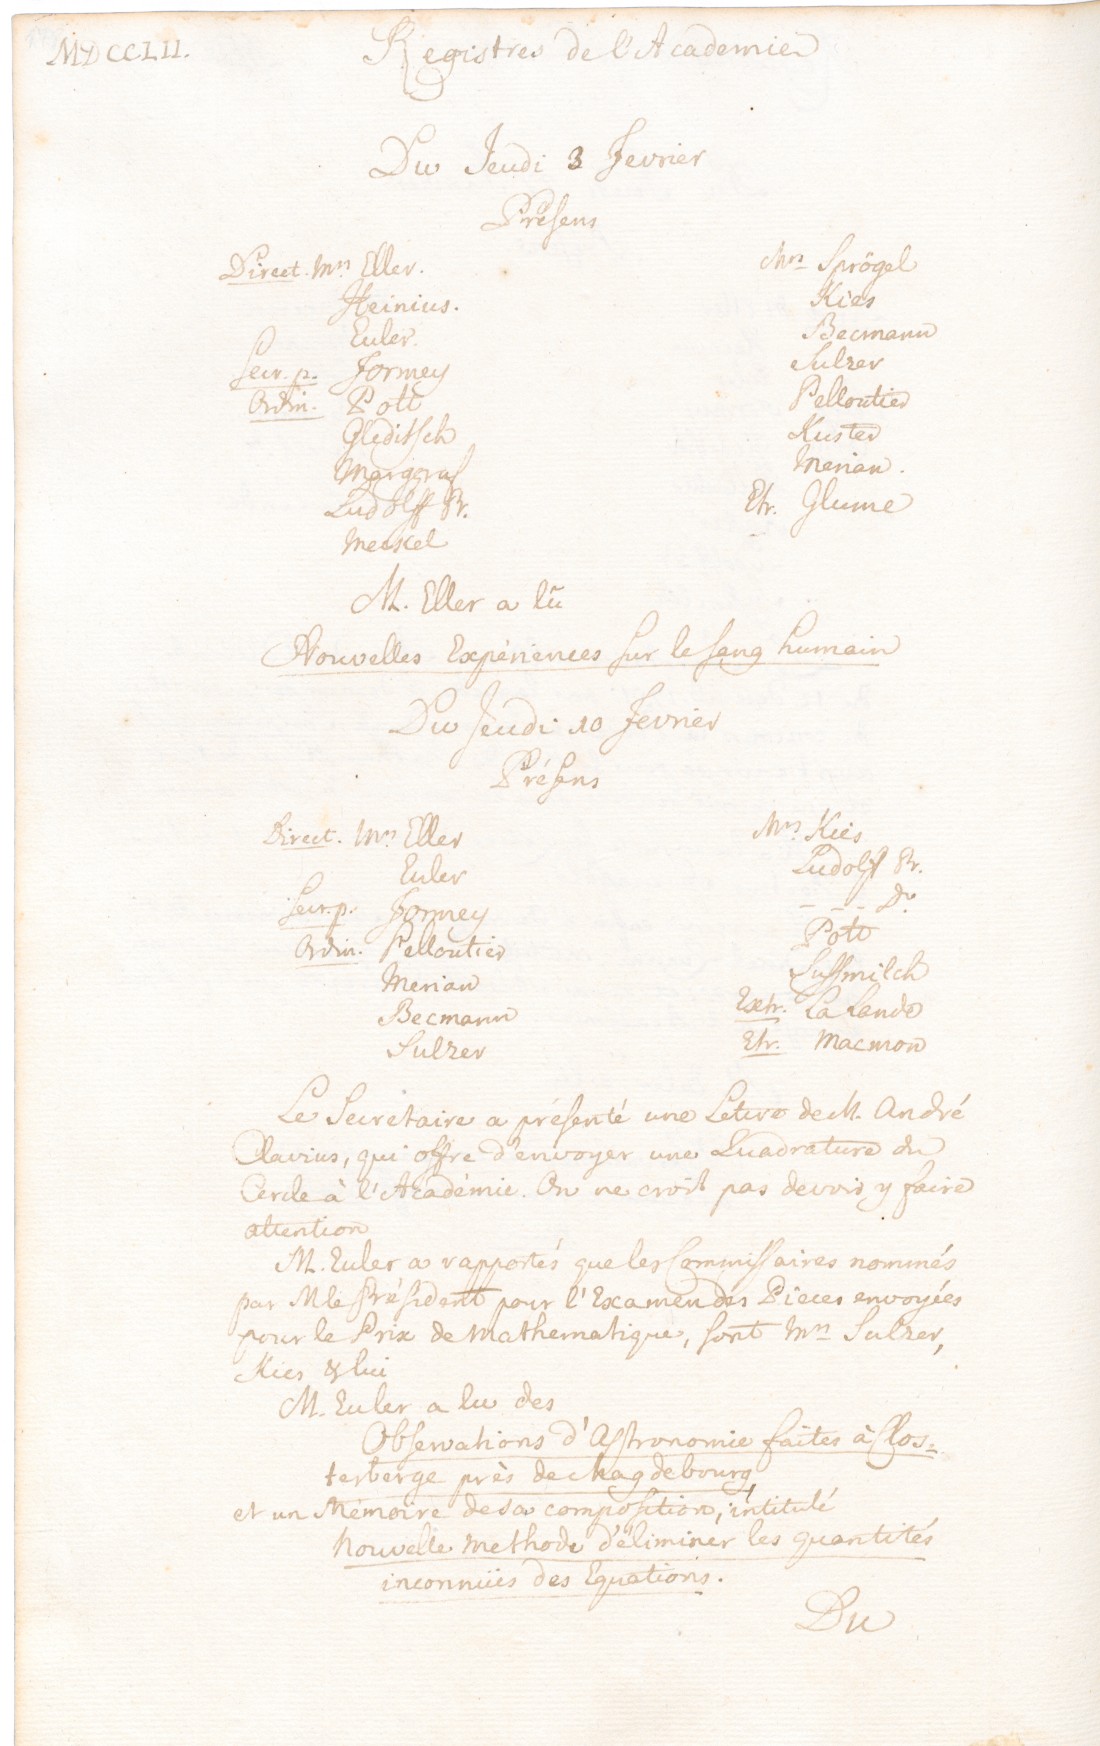 MDCCLII.
Registres de l'Academie
Du Jeudi 3 Fevrier
Présens
Direct. Mrs Eller.
Heinius.
Euler.
Secr. p. Formey
Ordin. Pott
Gleditsch
Marggraf
Ludolff Pr.
Meckel
Mrs Sprögel
Kies
Becmann
Sulzer
Pelloutier
Kuster
Merian.
Etr. Glume
M. Eller a lû
Nouvelles Expériences sur le sang humain
Du Jeudi 10 Fevrier
Présens
Direct. Mrs Eller
Euler
Secr. p. Formey
Ordin. Pelloutier
Merian
Becmann
Sulzer
Mrs Kies
Ludolff Pr.
- - - Dr
Pott
Sussmilch
Extr. La Lande
Etr. Macmon
Le Secretaire a présenté une Letre de M. André
Clavius, qui offre d'envoyer une Quadrature du
Cercle à l'Académie. On ne croit pas devoir y faire
attention
M. Euler a rapportés que les Commissaires nommés
par M le Président pour l'Examen des Pieces envoyées
pour le Prix de Mathematique, sont Mrs Sulzer,
Kies & lui
M. Euler a lu des
Observations d'Astronomie faites à Clos=
terberge près de Magdebourg,
et un Mémoire de sa composition, intitulé
Nouvelle Methode d'éliminer les quantités
inconnües des Equations.
Du